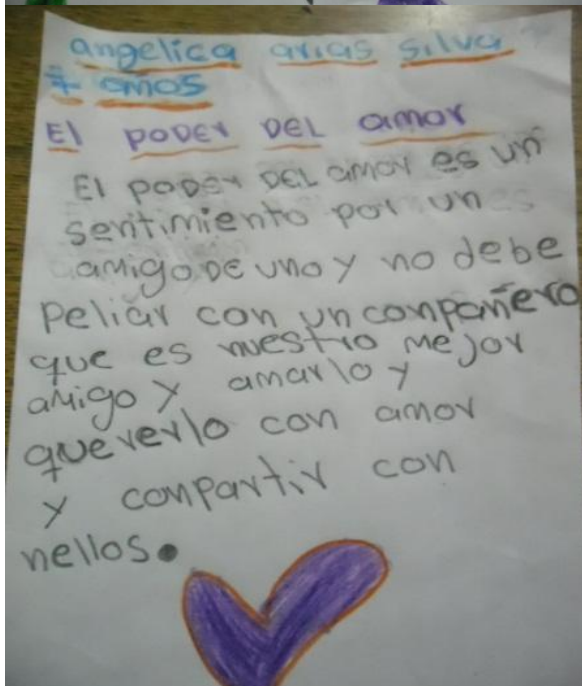 angelica arias silva
7 amos
El PODER DEL amor
El PODER DEL amor es un
sentimiento por un
amigo DE uno y no debe
peliar con un conpañero
que es nuestro mejor
amigo y amarlo y
quererlo con amor
y conpartir con
nellos.